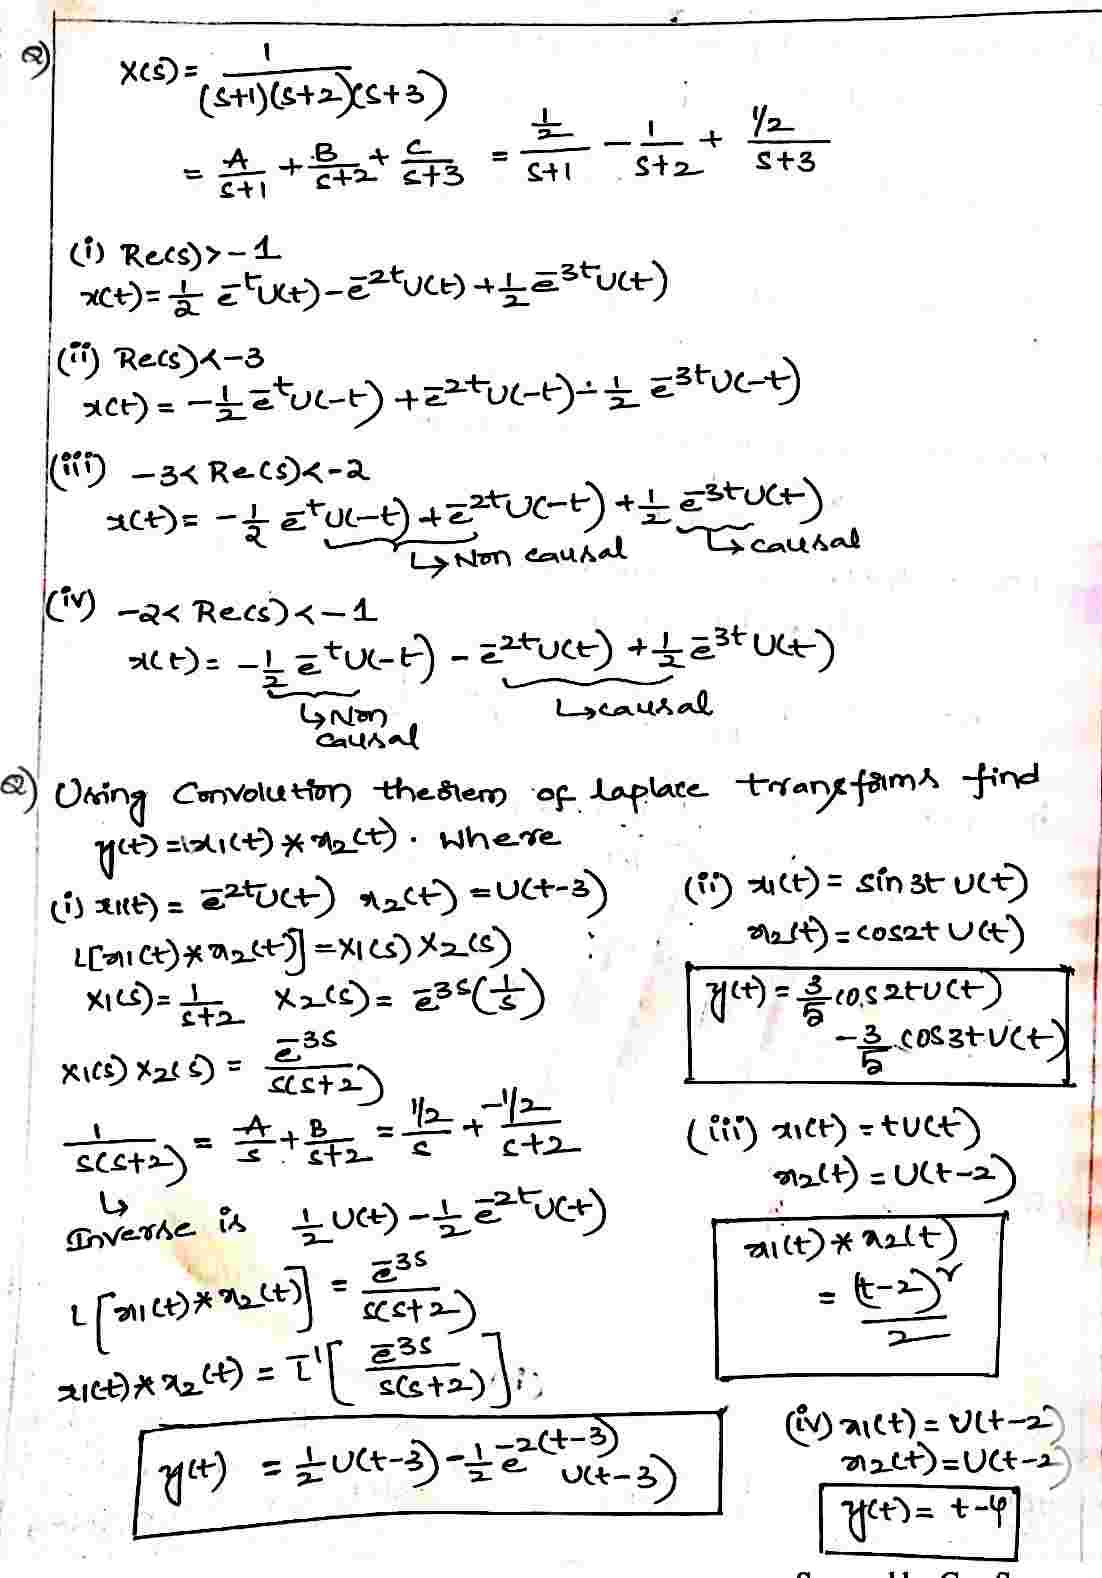 Q) X(s) = 1/((s+1)(s+2)(s+3))
= A/(s+1) + B/(s+2) + C/(s+3) = (1/2)/(s+1) - 1/(s+2) + (1/2)/(s+3)
(i) Re(s) > -1
x(t) = 1/2 e^-t U(t) - e^-2t U(t) + 1/2 e^-3t U(t)
(ii) Re(s) < -3
x(t) = -1/2 e^-t U(-t) + e^-2t U(-t) - 1/2 e^-3t U(-t)
(iii) -3 < Re(s) < -2
x(t) = -1/2 e^-t U(-t) + e^-2t U(-t) + 1/2 e^-3t U(t)
↳ Non causal ↳ causal
(iv) -2 < Re(s) < -1
x(t) = -1/2 e^-t U(-t) - e^-2t U(t) + 1/2 e^-3t U(t)
↳ Non causal ↳ causal
Q) Using Convolution theorem of laplace transforms find
y(t) = x1(t) * x2(t). where
(i) x1(t) = e^-2t U(t) x2(t) = U(t-3)
L[x1(t) * x2(t)] = X1(s) X2(s)
X1(s) = 1/(s+2) X2(s) = e^-3s (1/s)
X1(s) X2(s) = e^-3s/(s(s+2))
1/(s(s+2)) = A/s + B/(s+2) = (1/2)/s + (-1/2)/(s+2)
↳
Inverse is 1/2 U(t) - 1/2 e^-2t U(t)
L[x1(t) * x2(t)] = e^-3s/(s(s+2))
x1(t) * x2(t) = L^-1[e^-3s/(s(s+2))]
y(t) = 1/2 U(t-3) - 1/2 e^-2(t-3) U(t-3)
(ii) x1(t) = sin 3t U(t)
x2(t) = cos2t U(t)
y(t) = 3/5 cos 2t U(t)
- 3/5 cos 3t U(t)
(iii) x1(t) = tU(t)
x2(t) = U(t-2)
x1(t) * x2(t)
= (t-2)^2/2
(iv) x1(t) = U(t-2)
x2(t) = U(t-2)
y(t) = t-4